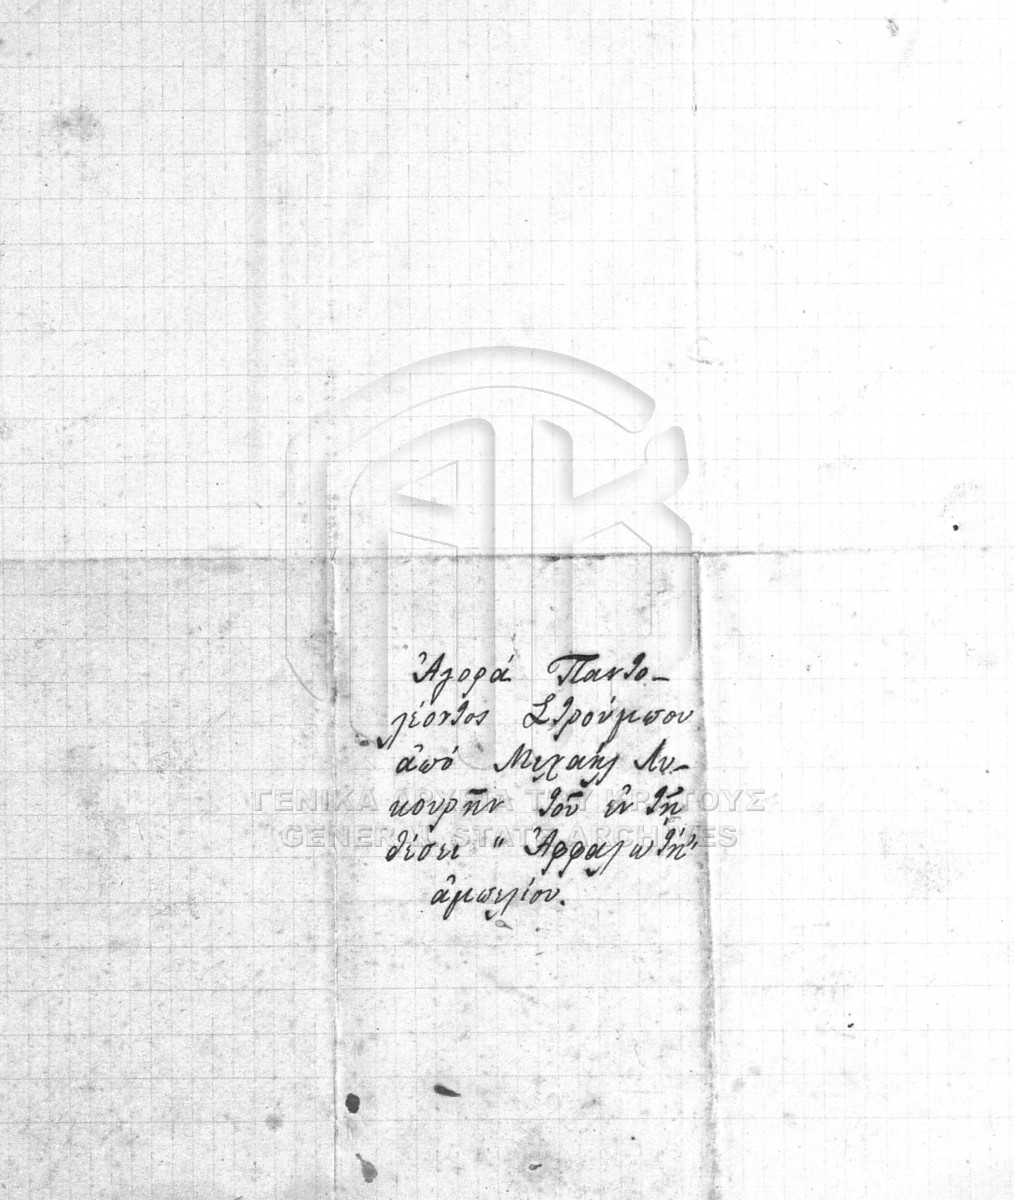 Ἀγορά Παντο-
λέοντος Στρούμπου
ἀπό Μιχαήλ Λυ-
κουρῆν τοῦ ἐν τῆ
θέσει " Ἀφφαλωτή"
ἀμπελίου.
ΓΕΝΙΚΑ ΑΡΧΕΙΑ ΤΟΥ ΚΡΑΤΟΥΣ
GENERAL STATE ARCHIVES